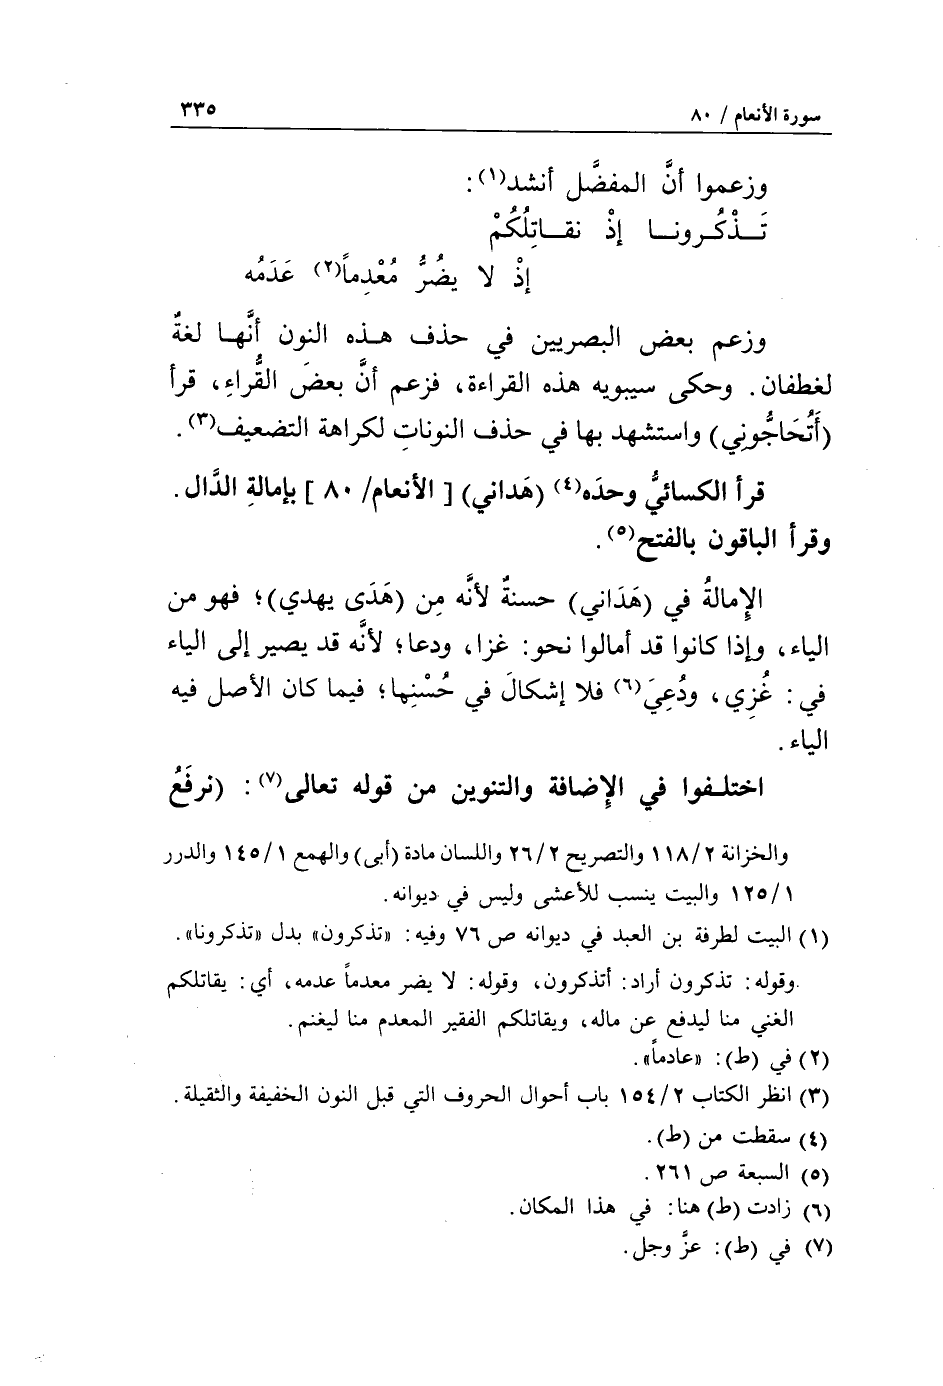 سورة الأنعام / ٨٠
٣٣٥
وزعموا أنَّ المفضَّل أنشد(١):
تَــذْكُــرونــا إذْ نقــاتِلُكُمْ
إذْ لا يضُرُّ مُعْدِماً(٢) عَدَمُه
وزعم بعض البصريين في حذف هــذه النون أنَّهـا لغةٌ
لغطفان. وحكى سيبويه هذه القراءة، فزعم أنَّ بعضَ القُّراءِ، قرأ
(أَتُحَاجُّونِي) واستشهد بها في حذف النوناتِ لكراهة التضعيف(٣).
قرأ الكسائيُّ وحدَه(٤) (هَداني) [ الأنعام/ ٨٠ ] بإمالةِ الدَّال.
وقرأ الباقون بالفتح(٥).
الإمالةُ في (هَدَاني) حسنةٌ لأنَّه مِن (هَدَى يهدي)؛ فهو من
الياء، وإذا كانوا قد أمالوا نحو: غزا، ودعا؛ لأنَّه قد يصير إلى الياء
في: غُزِي، ودُعِيَ(٦) فلا إشكالَ في حُسْنِها؛ فيما كان الأصل فيه
الياء.
اختلــفوا في الإضافة والتنوين من قوله تعالى(٧): (نرفَعُ
والخزانة ١١٨/٢ والتصريح ٢٦/٢ واللسان مادة (أبى) والهمع ١٤٥/١ والدرر
١٢٥/١ والبيت ينسب للأعشى وليس في ديوانه.
(١) البيت لطرفة بن العبد في ديوانه ص ٧٦ وفيه: «تذكرون» بدل «تذكرونا».
وقوله: تذكرون أراد: أتذكرون، وقوله: لا يضر معدماً عدمه، أي: يقاتلكم
الغني منا ليدفع عن ماله، ويقاتلكم الفقير المعدم منا ليغنم.
(٢) في (ط): «عادماً».
(٣) انظر الكتاب ١٥٤/٢ باب أحوال الحروف التي قبل النون الخفيفة والثقيلة.
(٤) سقطت من (ط).
(٥) السبعة ص ٢٦١.
(٦) زادت (ط) هنا: في هذا المكان.
(٧) في (ط): عزَّ وجل.